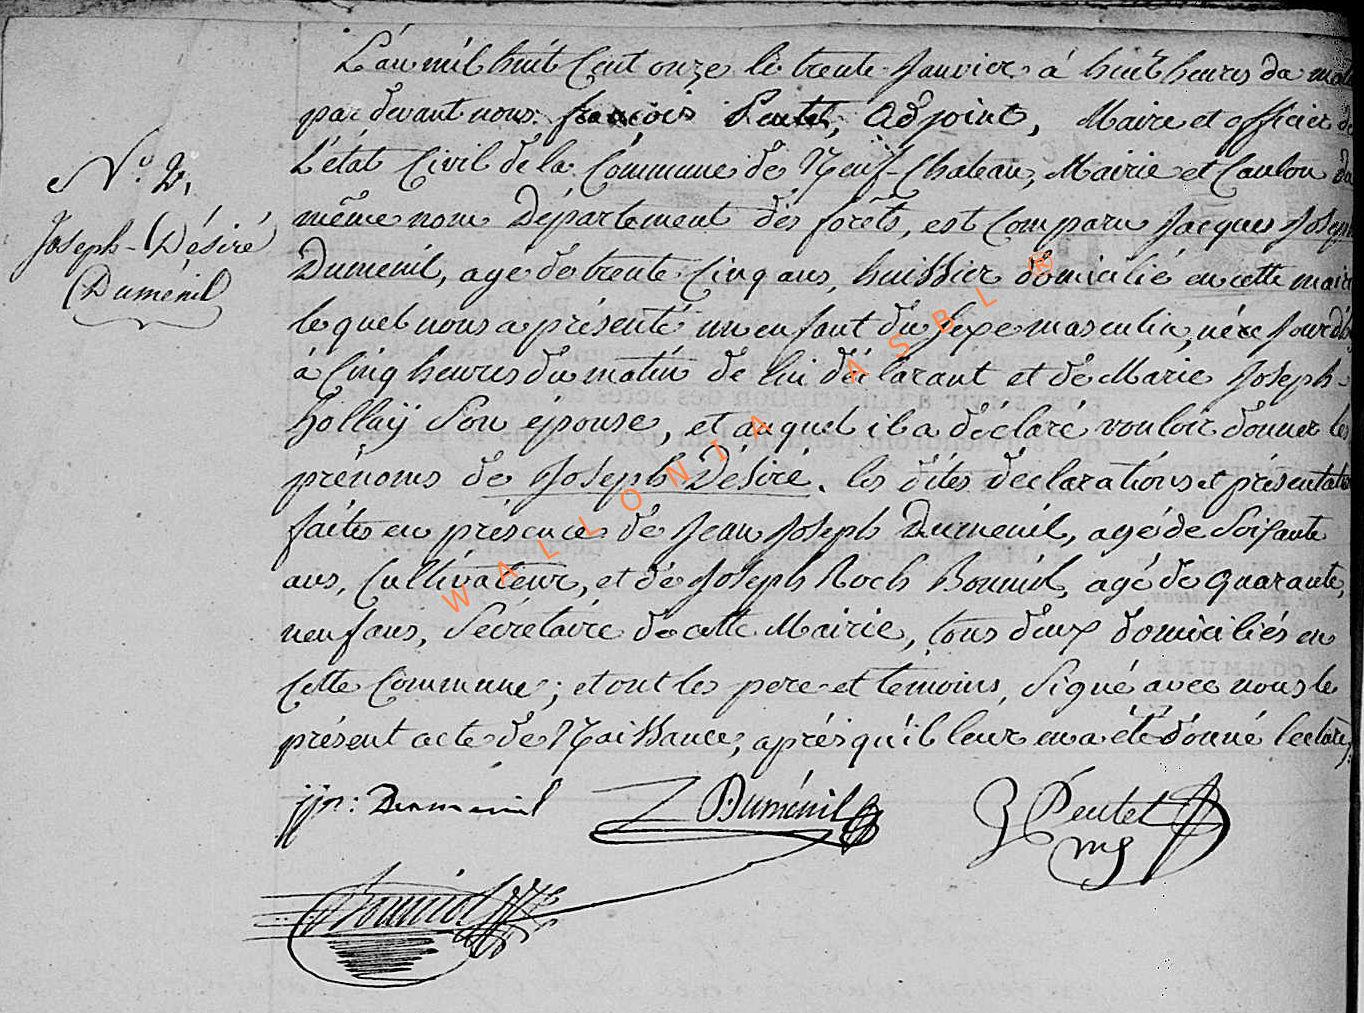 L'an mil huit Cent onze le trente Janvier à huit heures du mat
par devant nous françois Pentel, Adjoint, Maire et officier de
L'état Civil de la Commune de Neuf-Chateau, Mairie et Canton du
même nom Département des forêts, est Comparu Jacques Joseph
Duménil, agé de trente Cinq ans, huissier domicilié en cette mairie
le quel nous a présenté un enfant du sexe masculin, né ce Jourd'hui
à Cinq heures du matin de lui déclarant et de Marie Joseph
hollaÿ Son épouse, et auquel il a déclaré vouloir donner les
prénoms de Joseph Désiré. les dites déclarations et présentation
faites en présence de Jean Joseph Dumenil, agé de Soixante
ans, Cultivateur, et de Joseph Roch Bouniol, agé de quarante,
neuf ans, Sécrétaire de cette Mairie, tous deux domiciliés en
Cette Commune; et ont les pere et témoins, Signé avec nous le
présent acte de Naissance, après qu'il leur en a été donné lecture,
N.º 2,
Joseph-Désiré
Duménil
jjn: Duménil
Duménil
Pentel
Bouniol
WALLONIA ASBL ®